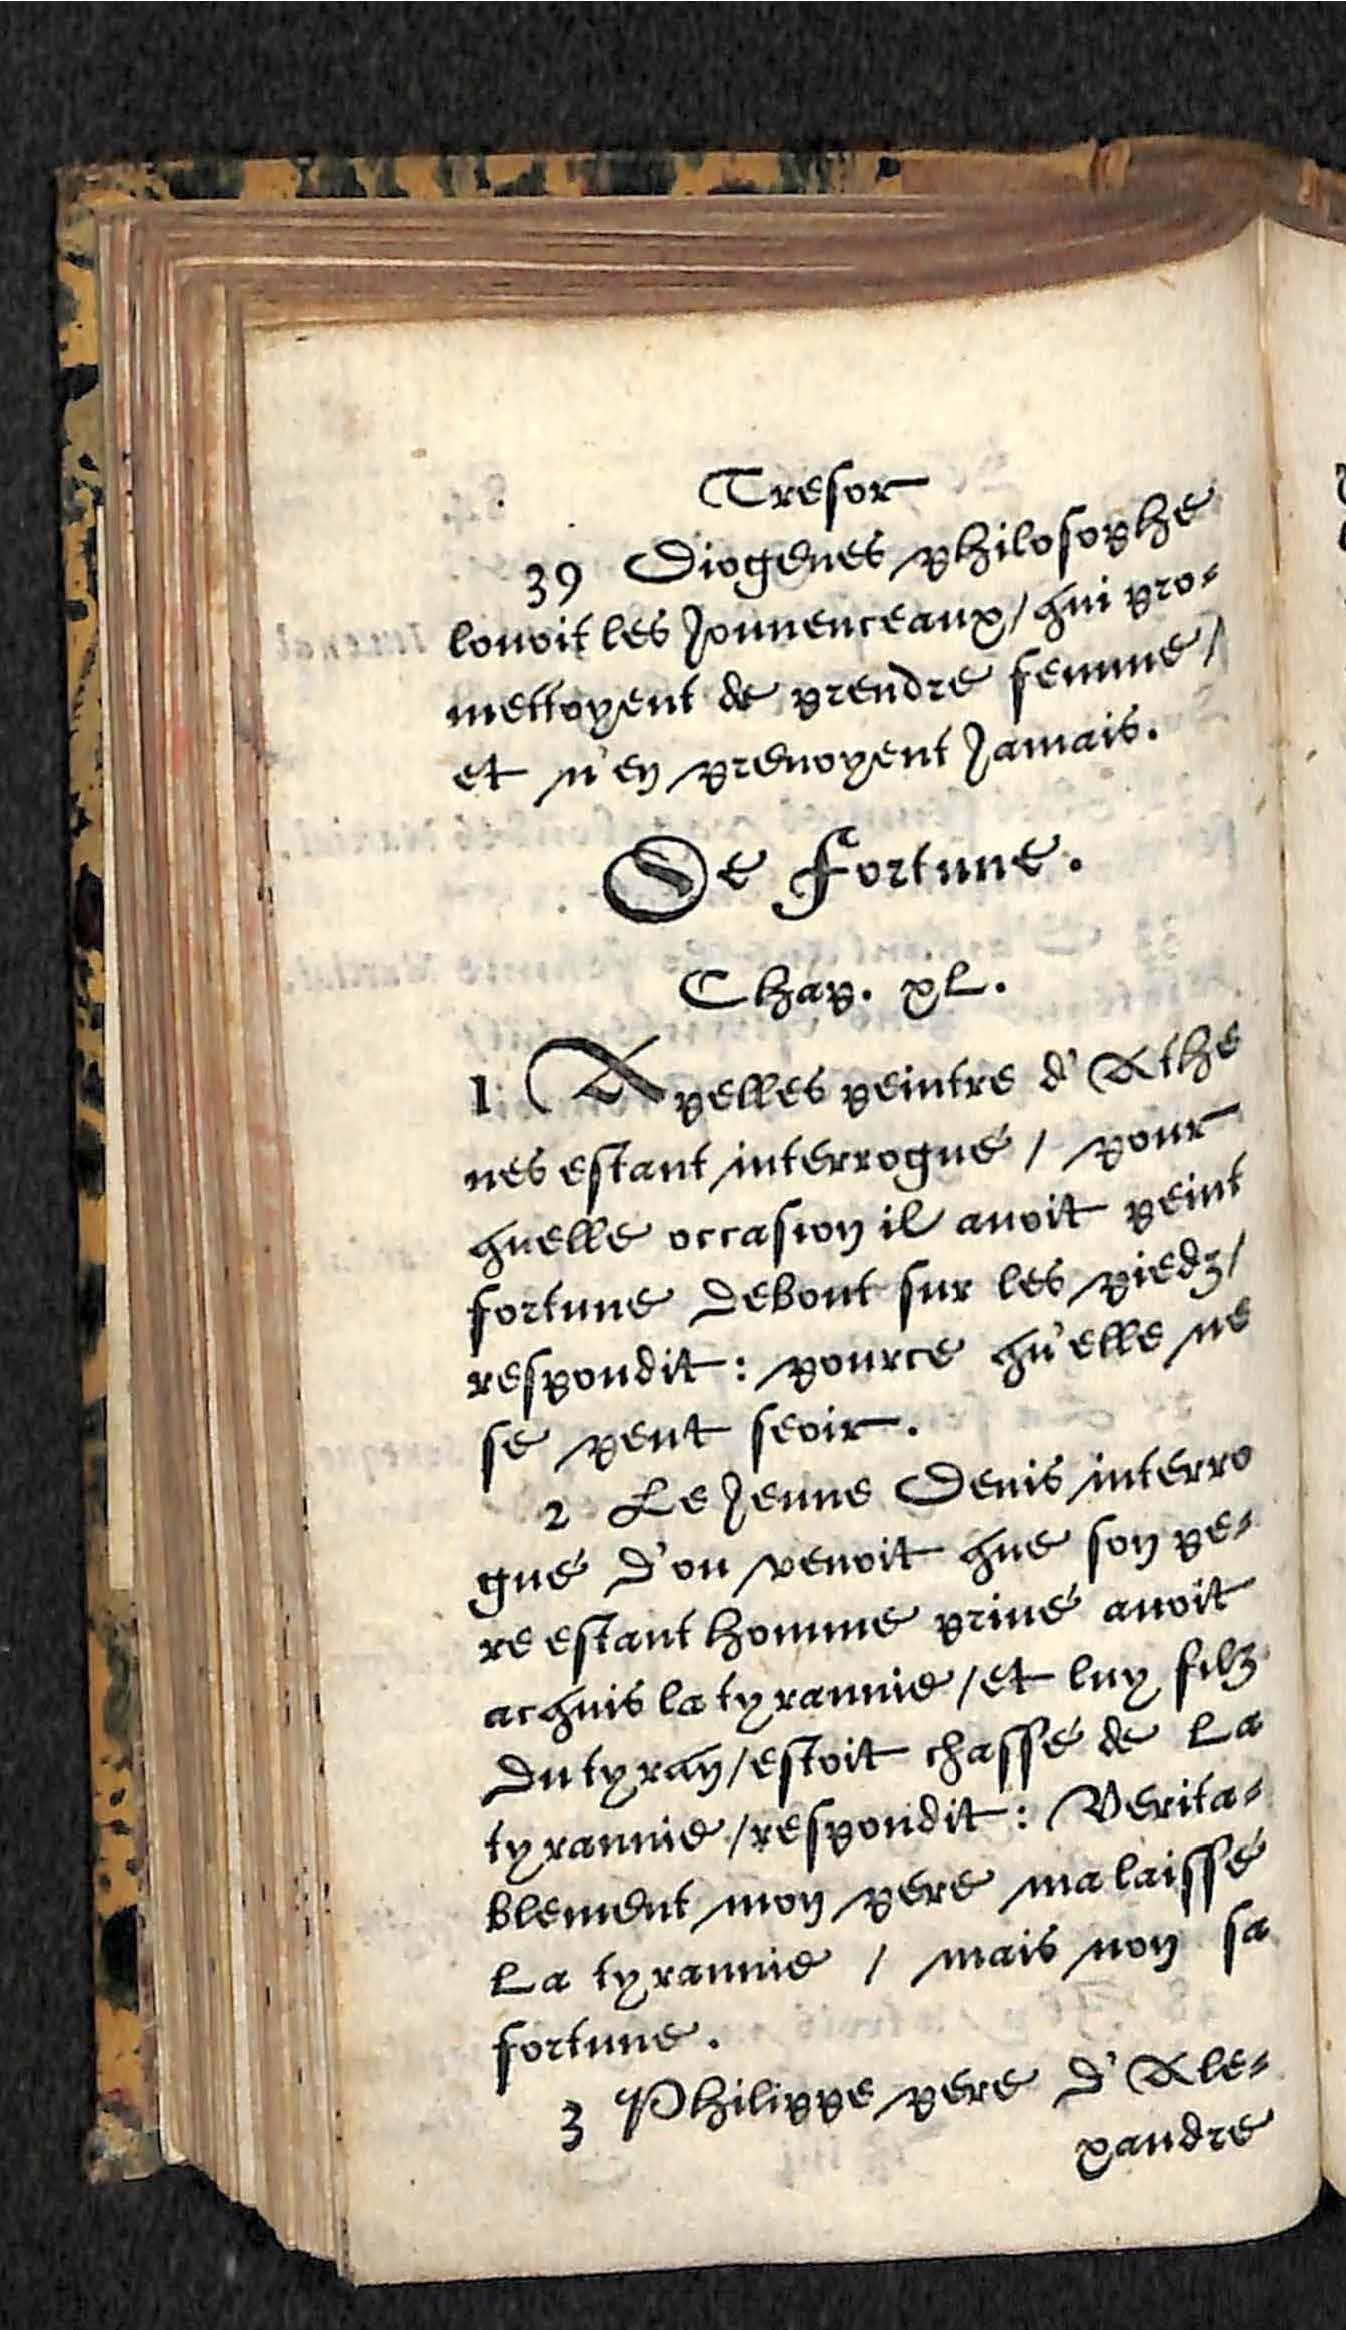 Tresor
39 Diogenes philosophe
louoit les Jouuenceaux/ qui pro-
mettoyent de prendre femme/
et n'en prenoyent Jamais.
De Fortune.
Chap. xL.
1 Apelles peintre d'Athe
nes estant interrogué / pour
quelle occasion il auoit peint
fortune debout sur les piedz/
respondit: pource qu'elle ne
se peut seoir.
2 Le Jeune Denis interro
gué d'ou venoit que son pe-
re estant homme priué auoit
acquis la tyrannie/et luy filz
du tyran/estoit chassé de La
tyrannie/respondit: Verita-
blement mon pere ma laissé
La tyrannie / mais non sa
fortune.
3 Philippe pere d'Ale-
xandre